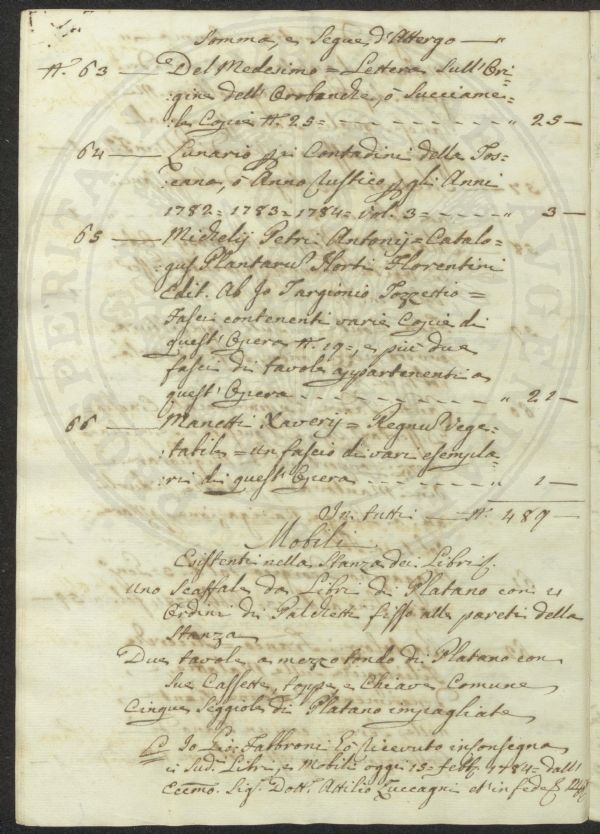 Somma, e Segue d'Attergo — "
N.° 63 — Del Medesimo = Lettera Sull'Ori=
:gine dell'Orobanche, ò Succiame=
:le Copie N. 25 = - - - - - " 25 —
64 — Lunario p i Contadini della Tos=
:cana, ò Anno Rustico p gli Anni
1782 = 1783 = 1784 = Vol. 3 = - - - - " 3 —
65 — Michelij Petri Antonij = Catalo=
:gus Plantaru Horti Florentini
Edit. Ab Jo Targionio Tozzettio =
Fasci contenenti varie Copie di
quest'Opera N. 19 =, e più due
fasci di tavole appartenenti a
quest'Opera - - - - - - - - " 21 —
66 — Manetti Xaverij = Regnu Vege=
:tabile = un fascio di vari esempla=
:ri di quest'Opera - - - - - " 1 —
In tutti — N. 489 —
Mobili
Esistenti nella Stanza dei Libri
Uno Scaffale da Libri di Platano con
Ordini di Palchetti fisso alle pareti della
Stanza
Due tavole a mezzo tondo di Platano con
Sue Cassette, toppe, e Chiave Comune
Cinque Seggiole di Platano impagliate
Io Gio: Fabbroni ho ricevuto in consegna
i Sud.i Libri, e Mobili oggi 15 febb. 1784 = dall'
Eccmo. Sig. Dott. Attilio Zuccagni et in fede